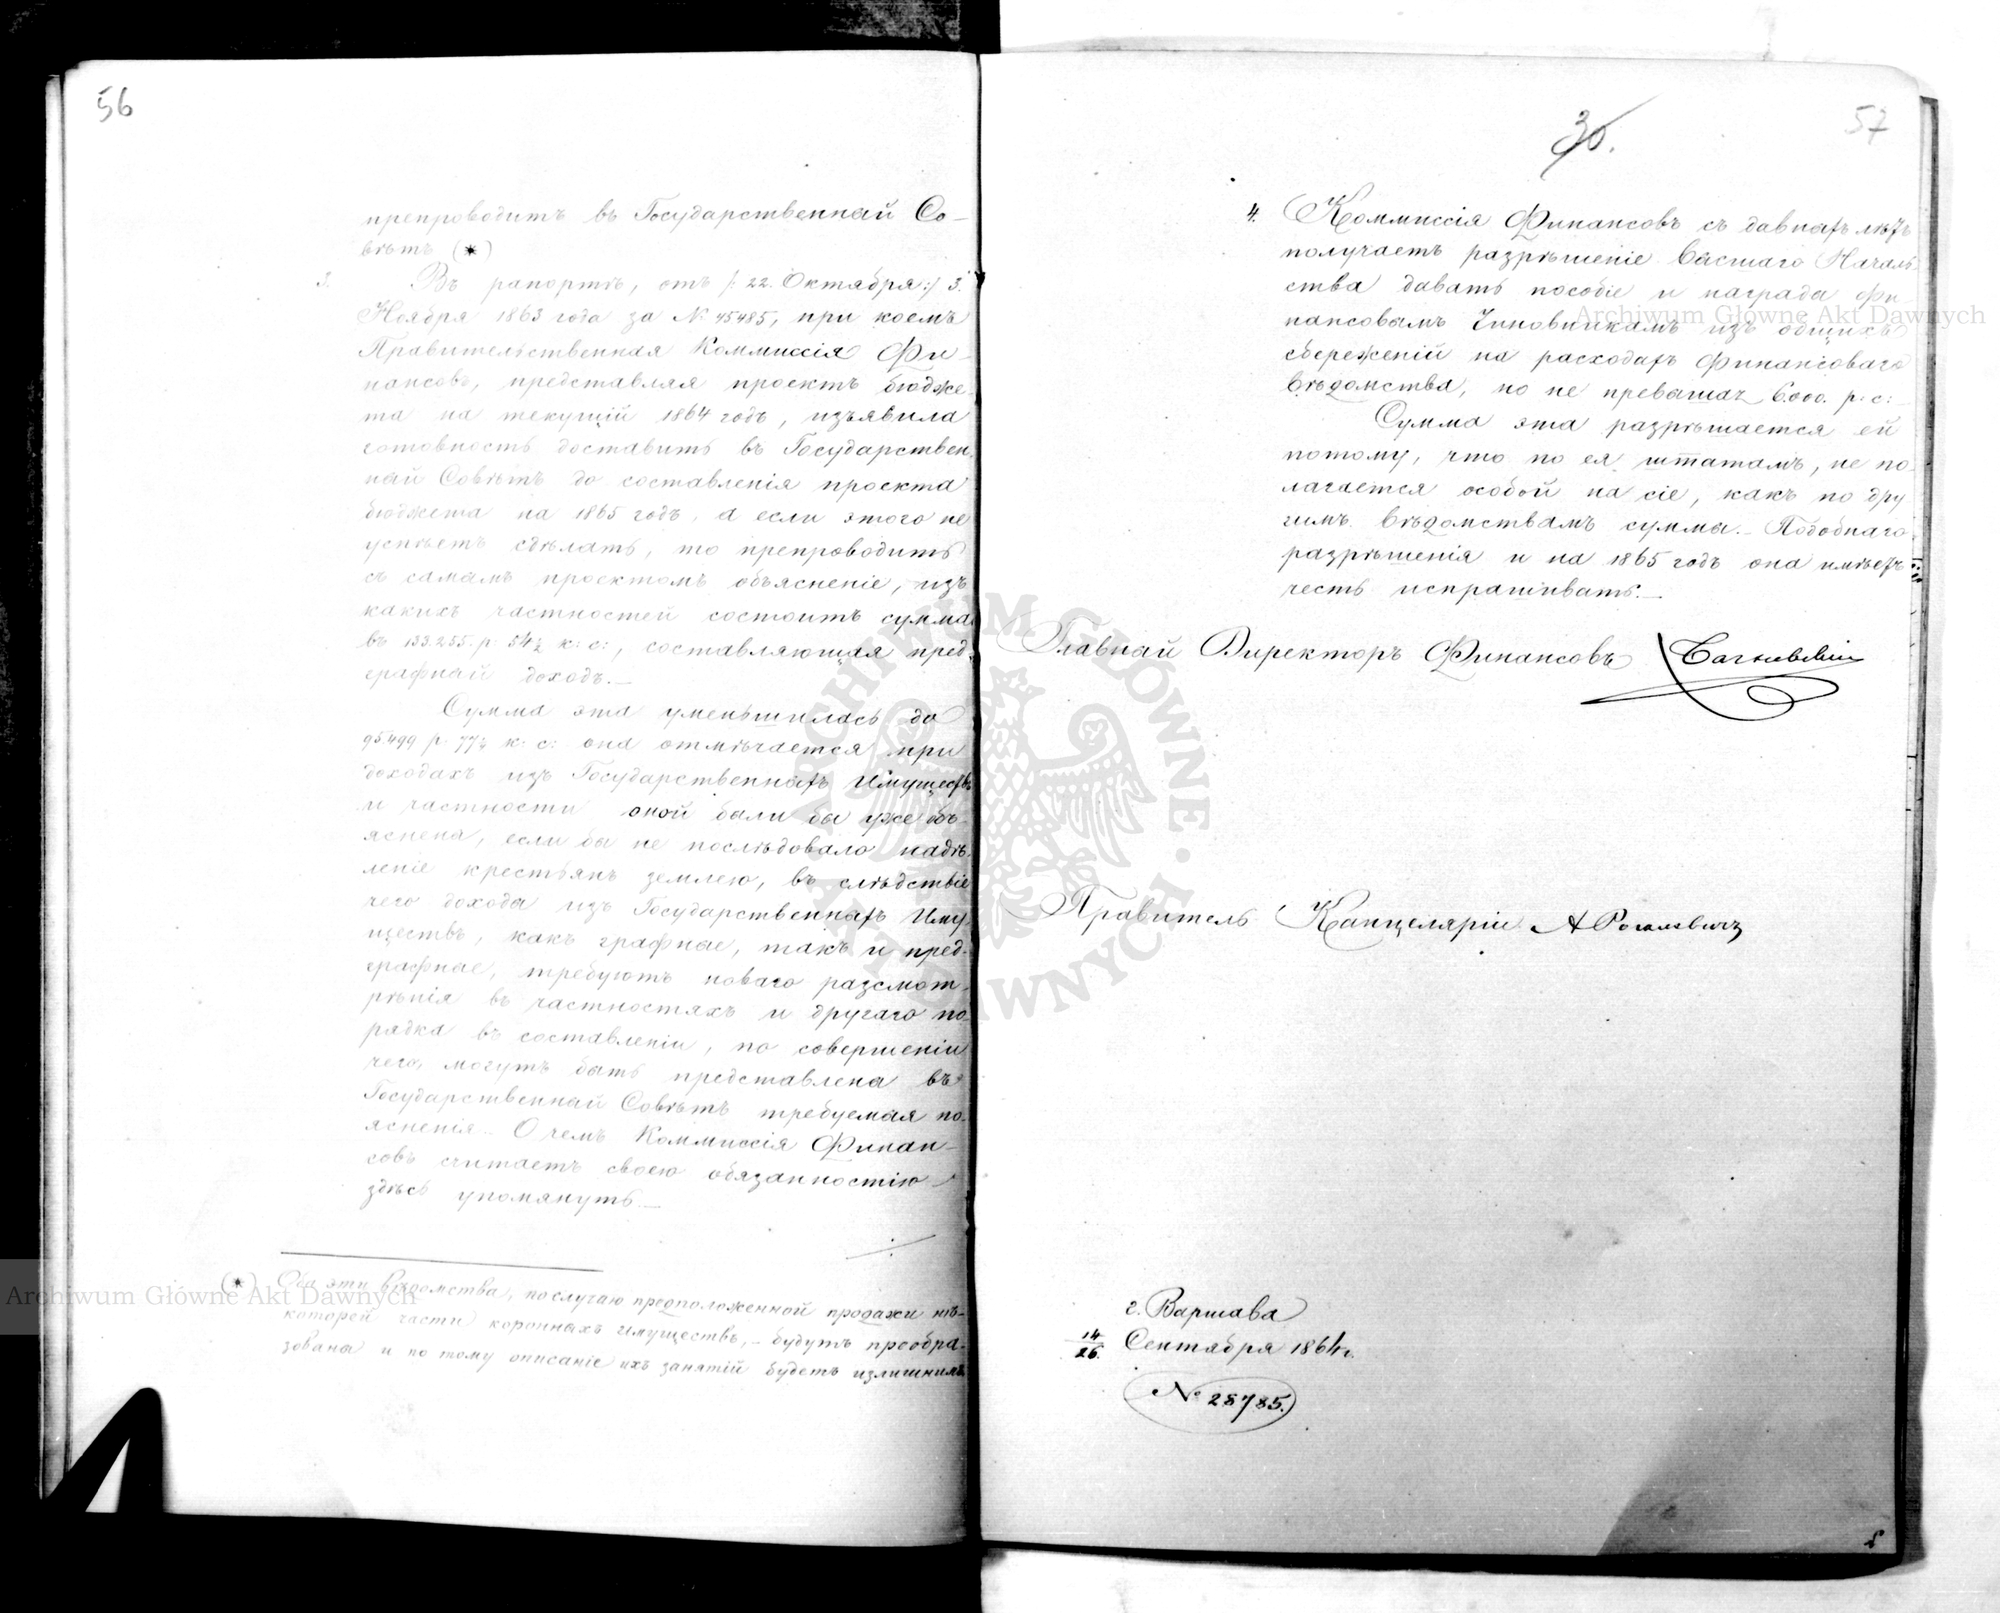 56
препроводитъ въ Государственный Со-
вѣтъ (*)
3. Въ рапортѣ, отъ /: 22. Октября :/ 3.
Ноября 1863 года за № 45485, при коемъ
Правительственная Коммиссія Фи-
нансовъ, представляя проектъ бюдже-
та на текущій 1864 годъ, изъявила
готовность доставить въ Государствен-
ный Совѣтъ до составленія проекта
бюджета на 1865 годъ, а если этого не
успѣетъ сдѣлать, то препроводить
съ самымъ проектомъ объясненіе, изъ
какихъ частностей состоитъ сумма
въ 133.255. р. 54½ к: с:, составляющая пред-
графный доходъ.—
Сумма эта уменьшилась до
95.499 р. 77½ к: с: она отмѣчается при
доходахъ изъ Государственныхъ Имуществъ
и частности оной были бы уже объ-
яснены, если бы не послѣдовало надѣ-
леніе крестьянъ землею, въ слѣдствіе
чего дохода изъ Государственныхъ Иму-
ществъ, какъ графные, такъ и пред-
графные, требуютъ новаго разсмот-
рѣнія въ частностяхъ и другаго по-
рядка въ составленіи, по совершеніи
чего, могутъ быть представлена въ
Государственный Совѣтъ требуемая по-
ясненія.— О чемъ Коммиссія Финан-
совъ считаетъ своею обязанностію
здѣсь упомянуть.—
(*) Оба эти вѣдомства, по случаю предположенной продажи нѣ-
которой части коронныхъ имуществъ,— будутъ преобра-
зованы и по тому описаніе ихъ занятій будетъ излишнимъ
30.
57
4. Коммиссія Финансовъ съ давныхъ лѣтъ
получаетъ разрѣшеніе Высшаго Началь-
ства давать пособіе и награды Фи-
нансовымъ Чиновникамъ изъ общихъ
сбереженій на расходахъ Финансоваго
Вѣдомства, но не превышая 6.000. р: с:
Сумма эта разрѣшается ей
потому, что по ея штатамъ, не по-
лагается особой на сіе, какъ по дру-
гимъ вѣдомствамъ суммы.— Подобнаго
разрѣшенія и на 1865 годъ она имѣетъ
честь испрашивать.—
Главный Директоръ Финансовъ Багневскій
Правитель Канцеляріи А Рогалевичъ
г. Варшава
14/26. Сентября 1864 г.
№ 28785.
Archiwum Główne Akt Dawnych
Archiwum Główne Akt Dawnych
ARCHIWUM GŁÓWNE AKT DAWNYCH